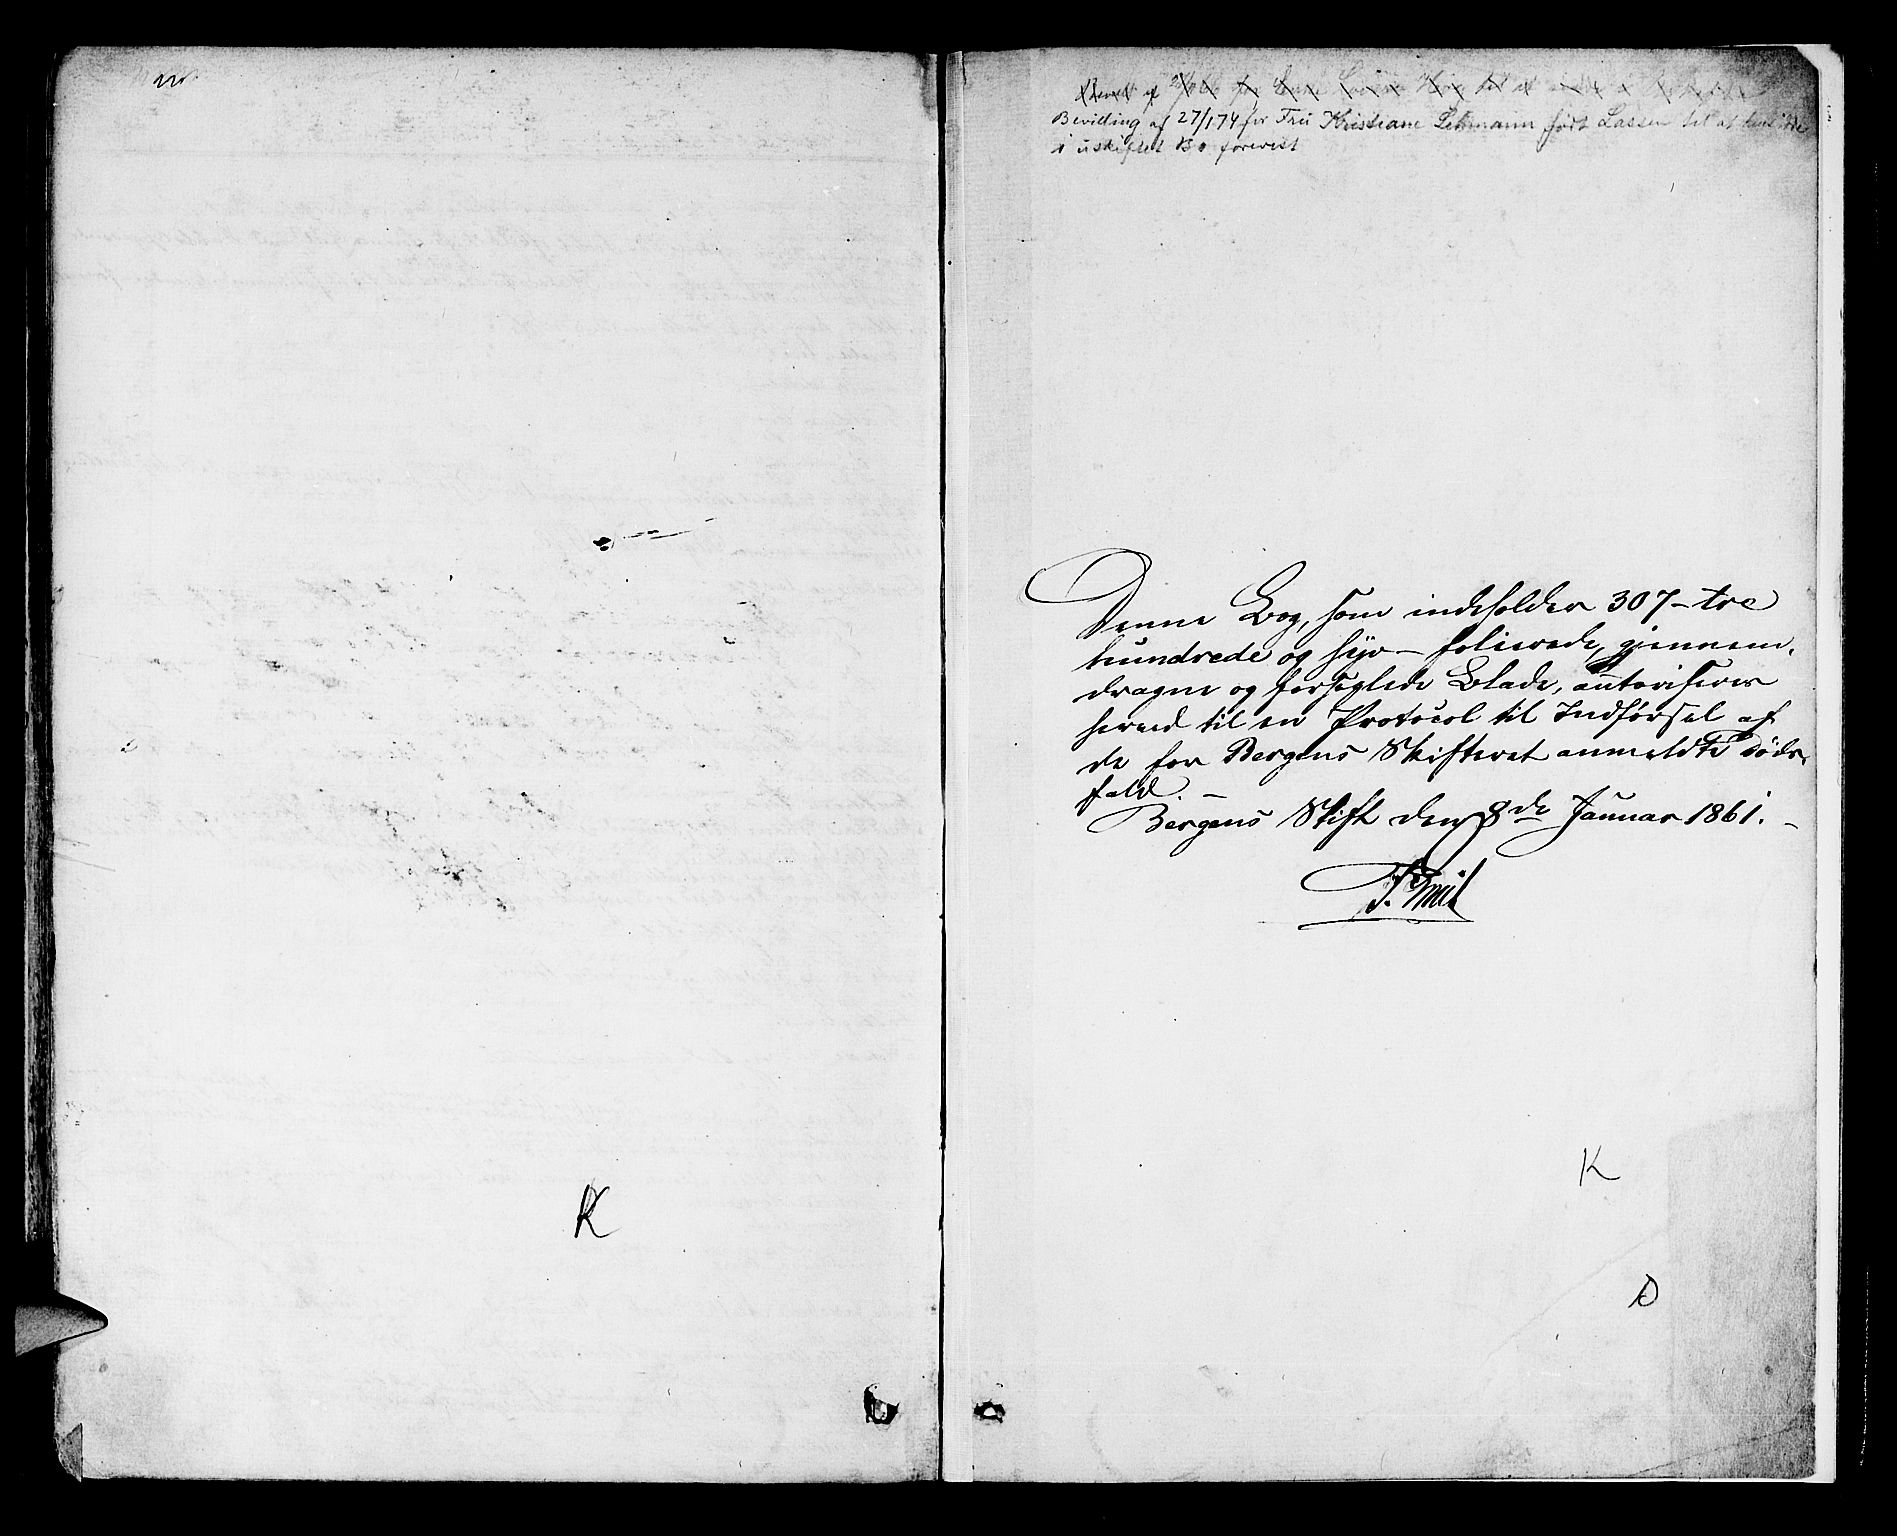 Bevilling af 27/1 74 for Fru Kristiane Lehmann født Lassen til at hensidde
i uskiftet Bo forevist
Denne Bog, som indeholder 307 – tre
hundrede og syv – folierede, gjennem-
dragne og forseglede Blade, autoriseres
herved til en Protocol til Indførsel af
de for Bergens Skifteret anmeldte Døds-
fald. –
Bergens Stift den 8de Januar 1861. –
K
K
D